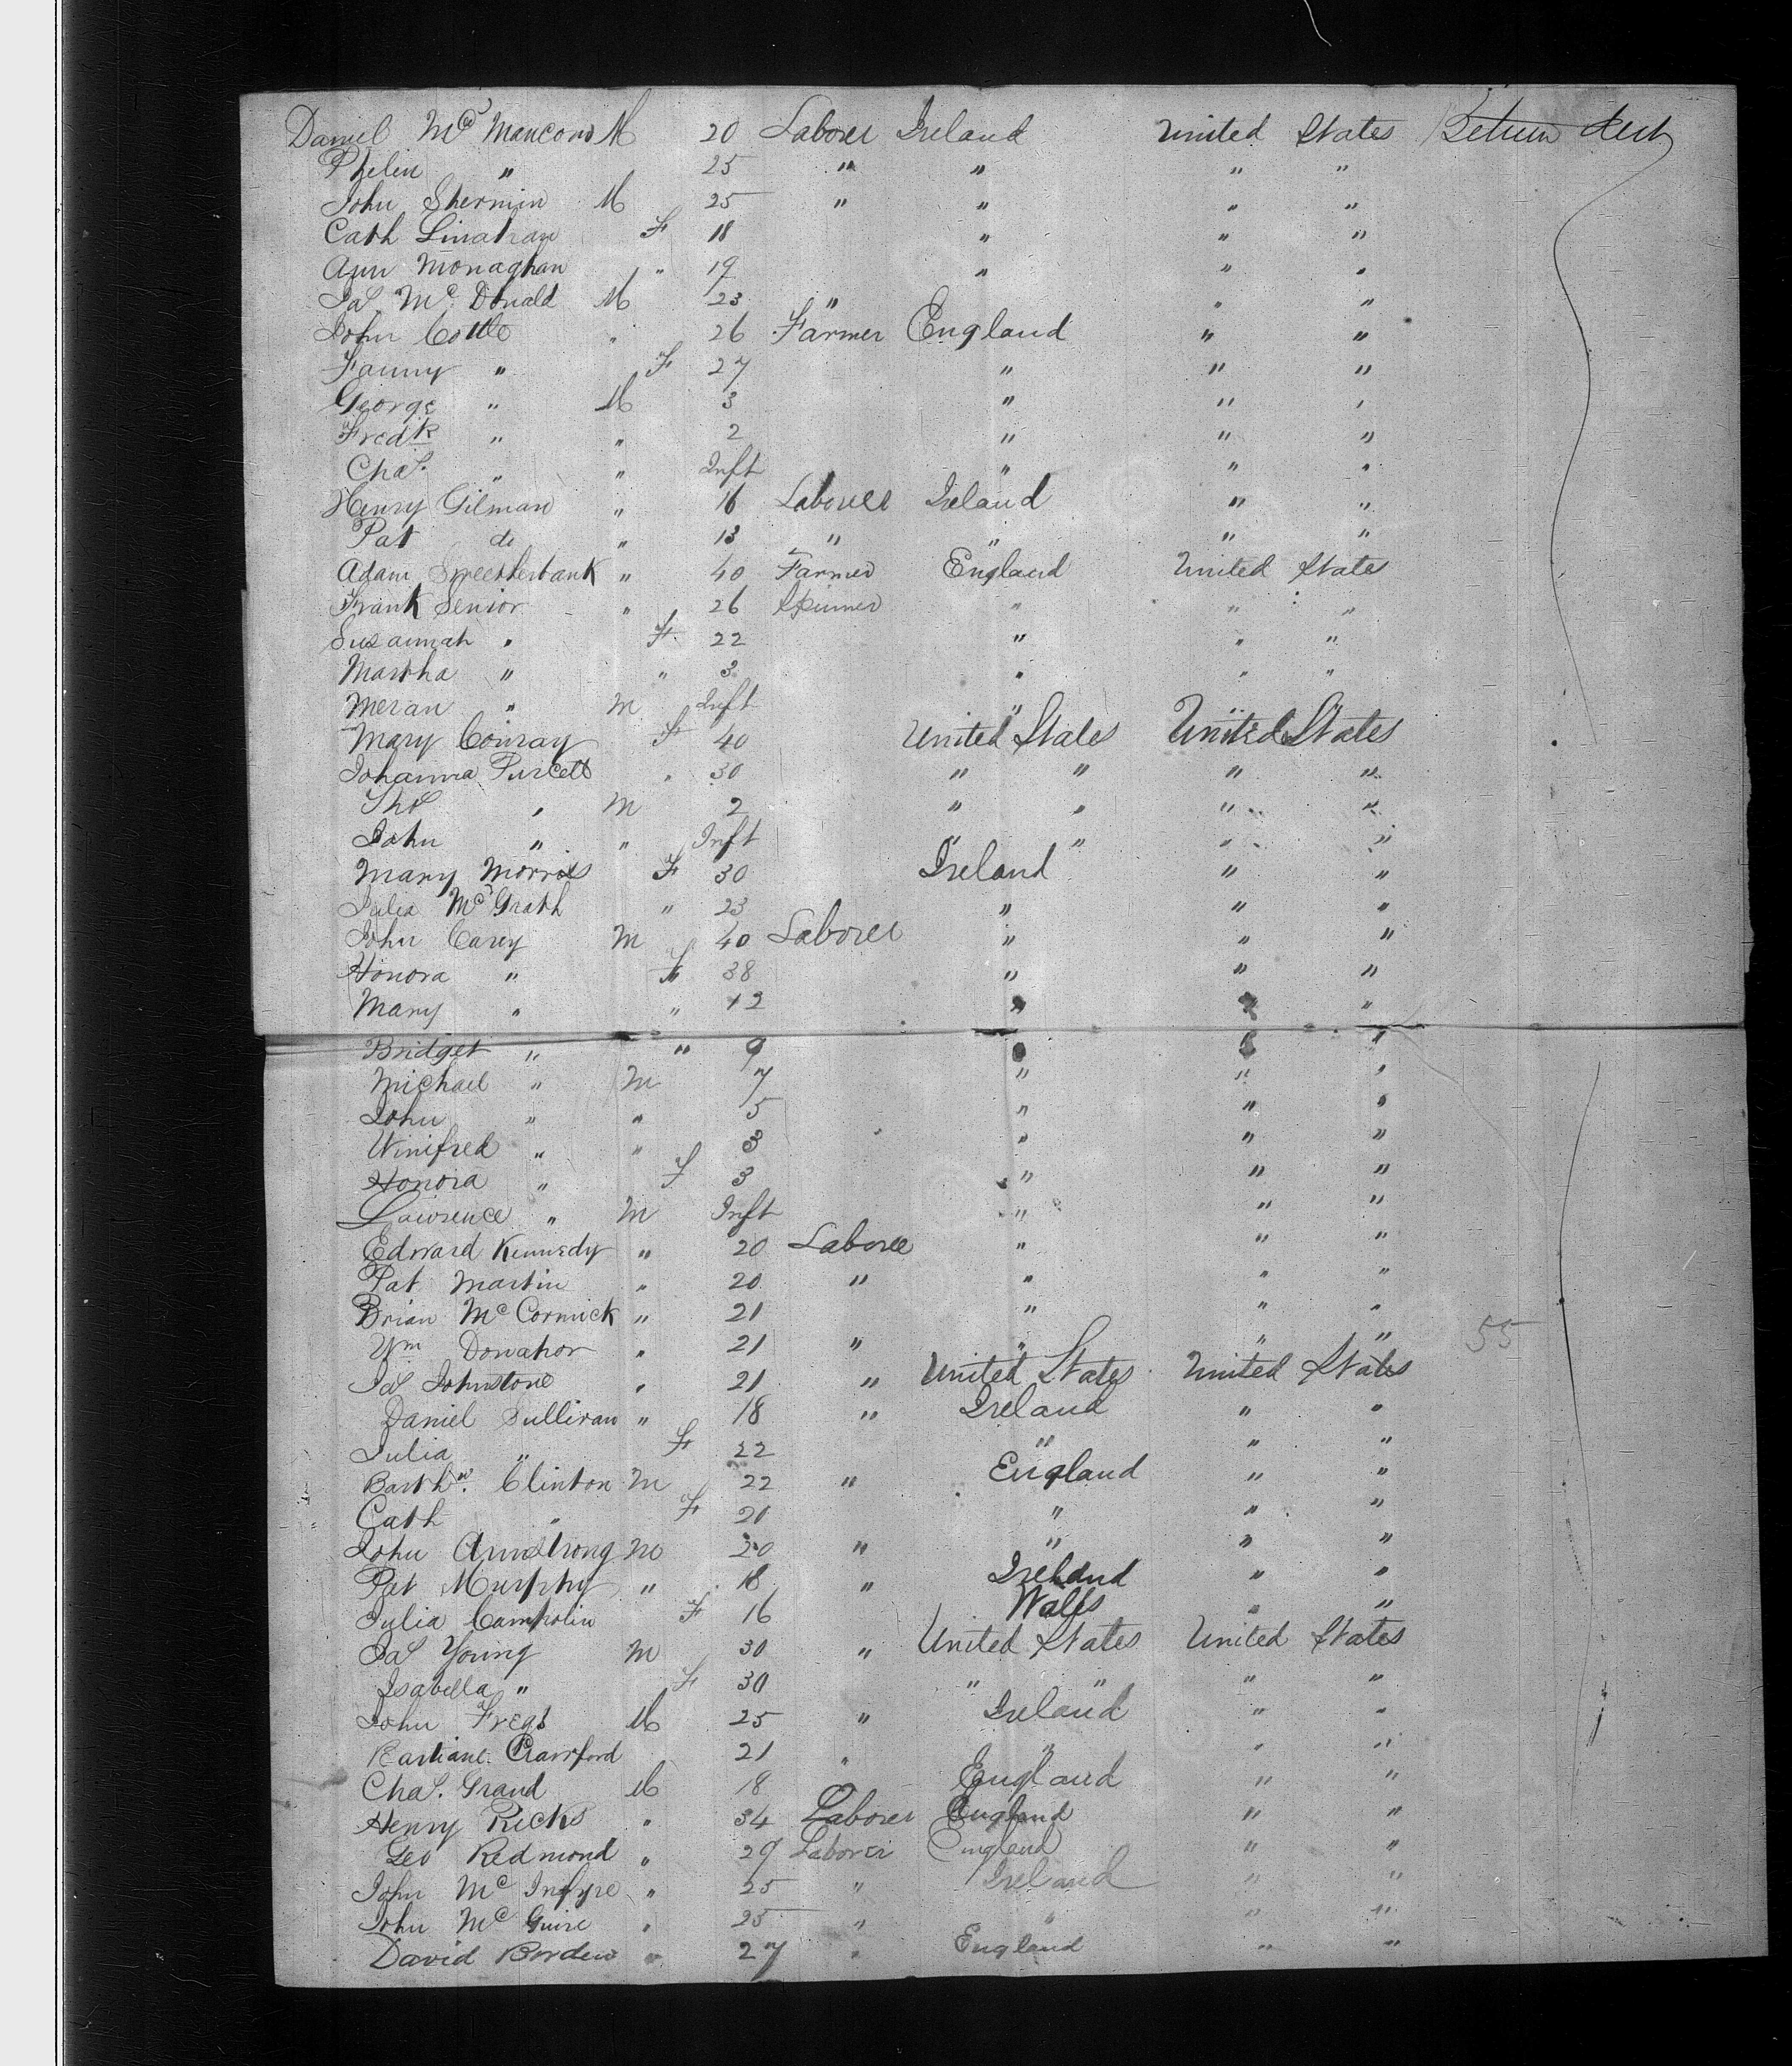 Daniel Mc Mancons M 20 Laborer Ireland United States Between deck
Phelin " 25 " " " "
John Shermin M 25 " " " "
Cath Linahan F 18 " " "
Ann Monaghan " 19 " " "
Jas Mc Donald M 23 " " "
John Cottle " 26 Farmer England " "
Fanny " F 27 " " "
George " M 3 " " "
Fredk " " 2 " " "
Chas. " " Inft " " "
Henry Gilman " 16 Laborer Ireland " "
Pat do " 13 " " " "
Adam 40 Farmer England United States
Frank Senior " 26 Spinner " " "
Susannah " F. 22 " " "
Martha " " 3 " " "
Meran " M Inft " " "
Mary Conray F 40 United States United States
Johanna Purcell " 30 " " " "
Thos " M 2 " " " "
John " " Inft " " " "
Mary Morris F 30 Ireland " "
Julia McGrath " 23 " " "
John Carey M 40 Laborer " " "
Honora " F 38 " " "
Mary " " 12 " " "
Bridget " " 9 " " "
Michael " M 7 " " "
John " " 5 " " "
Winifred " " 3 " " "
Honora " F 3 " " "
Lawrence " M Inft " " "
Edward Kennedy " 20 Laborer " " "
Pat Martin " 20 " " " "
Brian McCormick " 21 " " "
Wm Donahor " 21 " " " " 55
Jas Johnstone " 21 " United States United States
Daniel Sullivan " 18 " Ireland " "
Julia " F 22 " " "
Barthw. Clinton M 22 " England " "
Cath " F 20 " " "
John Armstrong M 20 " " " "
Pat Murphy " 18 " Ireland " "
Julia Campolin F 16 Wales " "
Jas Young M 30 " United States United States
Isabella " F 30 " " " "
John Fregs M 25 " Ireland " "
Crawford 21 " " " "
Chas. Grand M 18 England " "
Henry Ricks " 34 Laborer England " "
Geo Redmond " 29 Laborer England " "
John Mc Intyre " 25 " Ireland " "
John Mc Guire " 25 " " " "
David Borden " 27 " England " "